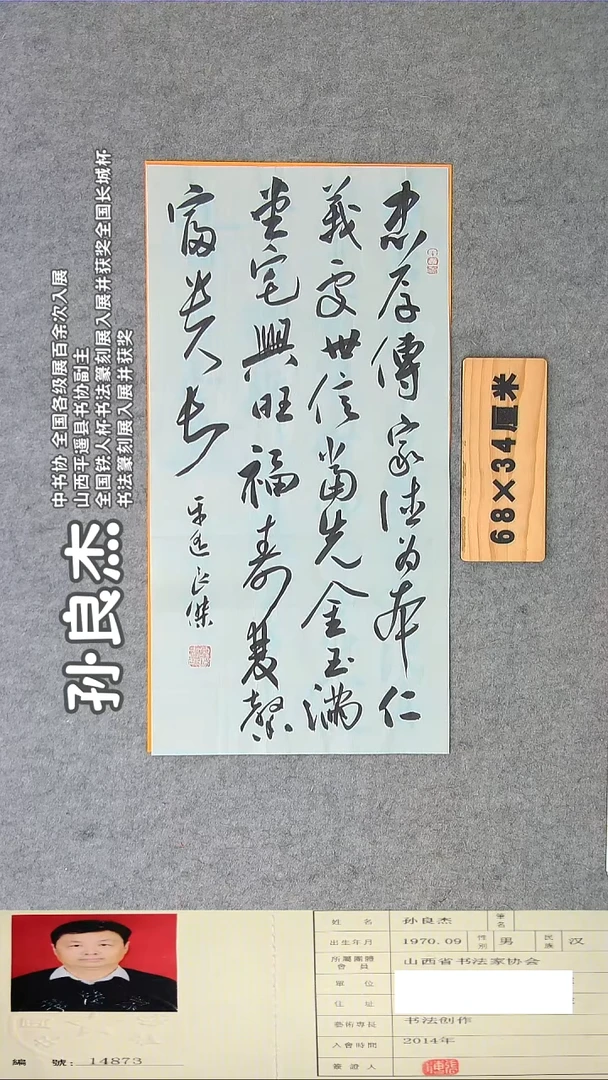 忠厚傳家德为本仁
義處世信當先金玉满
堂宅興旺福壽雙馨
富贵长
平遥良傑
68×34厘米
孙良杰
中书协 全国各级展百余次入展
山西平遥县书协副主
全国铁人杯书法篆刻展入展并获奖全国长城杯
书法篆刻展入展并获奖
姓名 孙良杰 筆名
出生年月 1970.09 性别 男 民族 汉
所屬團體會員 山西省书法家协会
單位
住址
藝術專長 书法创作
入會時間 2014年
簽證人
編號:14873